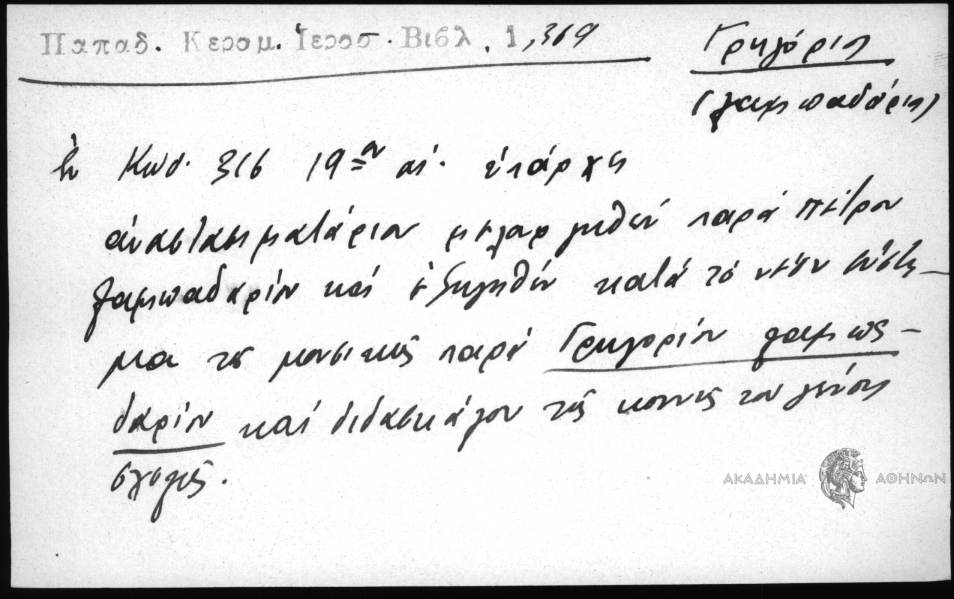 Παπαδ. Κεραμ. Ἱεροσ. Βιβλ. 1,369
Γρηγόριος
(λαμπαδάριος)
ἐν Κωδ. 316 19ου αἰ. ὑπάρχει
ἀναστασιματάριον μελισθέν παρά Πέτρου
λαμπαδαρίου καί ἐξηγηθέν κατά τό νέον σύστη-
μα τῆς μουσικῆς παρά Γρηγορίου λαμπα-
δαρίου καί διδασκάλου τῆς κοινῆς του γένους
σχολῆς.
ΑΚΑΔΗΜΙΑ ΑΘΗΝΩΝ